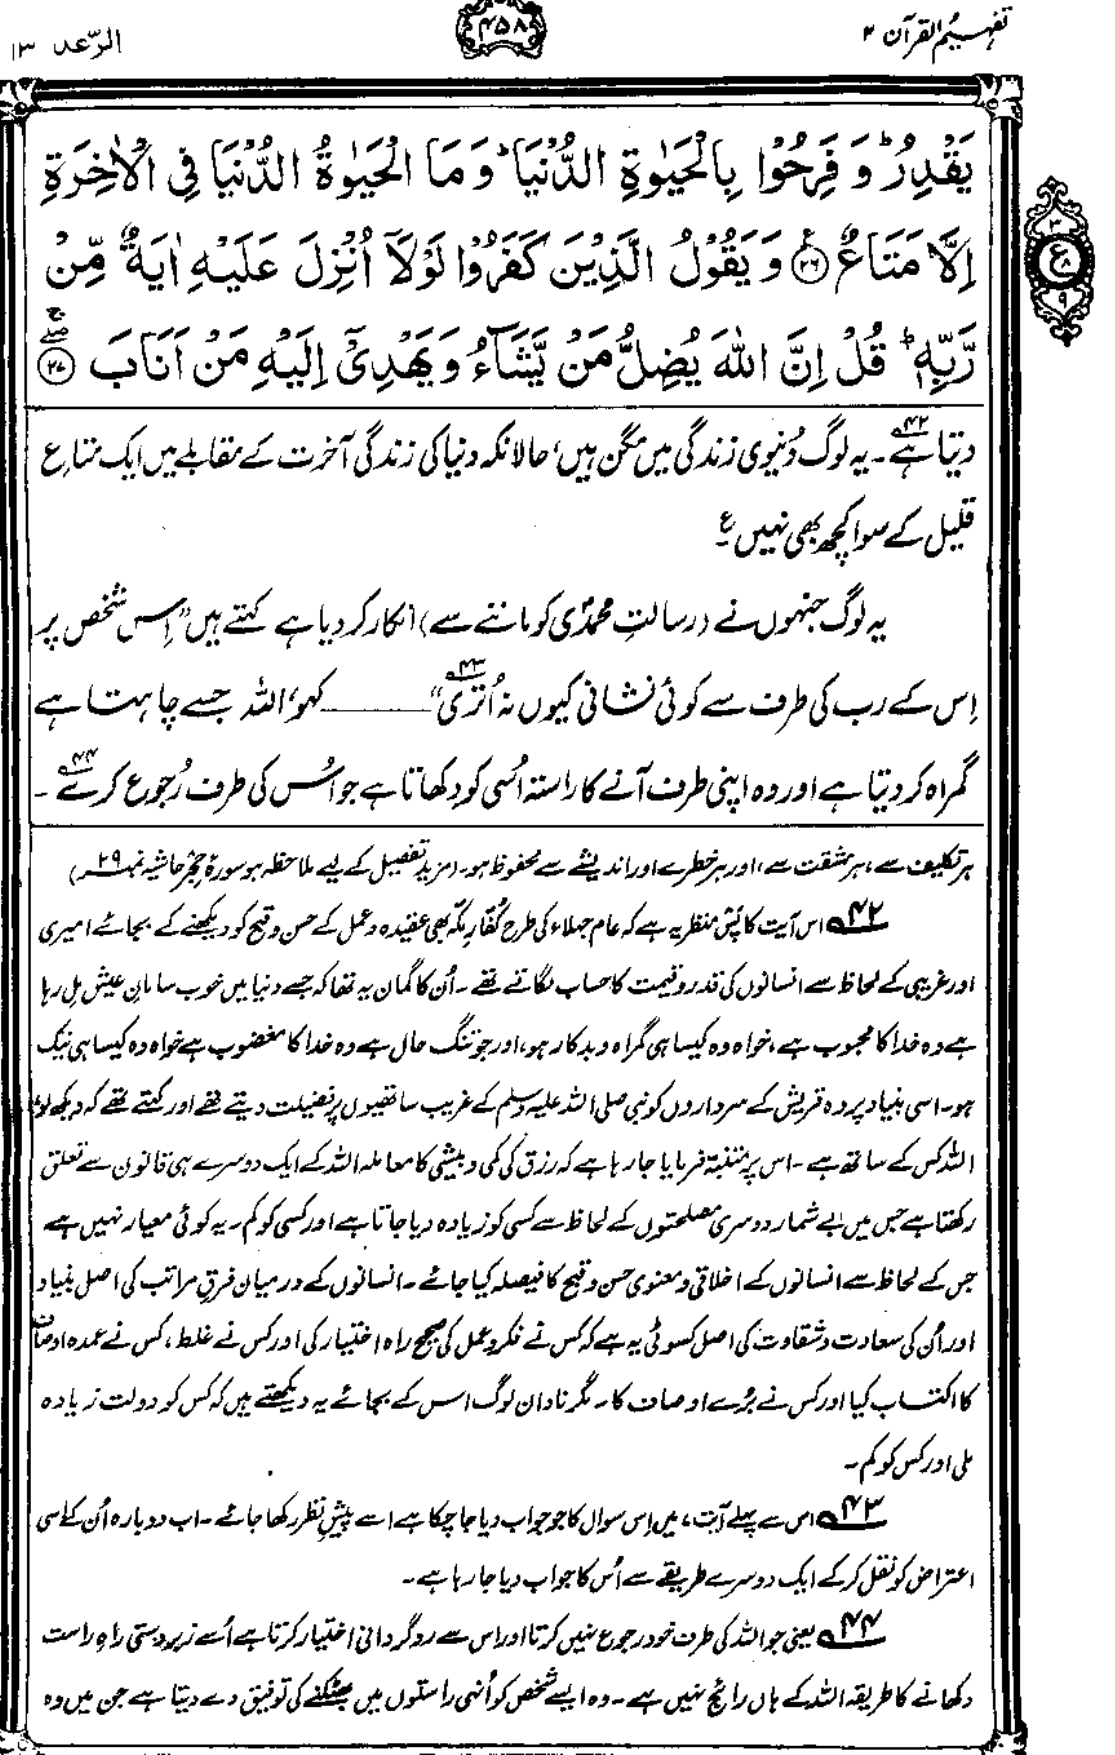 تفہیم القرآن ۲
۴۵۸
الرّعد ۱۳
يَقْدِرُ ؕ وَ فَرِحُوْا بِالْحَيٰوةِ الدُّنْيَا ؕ وَ مَا الْحَيٰوةُ الدُّنْيَا فِي الْاٰخِرَةِ
اِلَّا مَتَاعٌ ﴿۲۶﴾ وَ يَقُوْلُ الَّذِيْنَ كَفَرُوْا لَوْلَاۤ اُنْزِلَ عَلَيْهِ اٰيَةٌ مِّنْ
رَّبِّهٖ ؕ قُلْ اِنَّ اللّٰهَ يُضِلُّ مَنْ يَّشَآءُ وَ يَهْدِيْۤ اِلَيْهِ مَنْ اَنَابَ ﴿۲۷﴾
۳
ع
۸
۹
دیتا ہے۴۲۔ یہ لوگ دُنیوی زندگی میں مگن ہیں، حالانکہ دنیا کی زندگی آخرت کے مقابلے میں ایک متاعِ
قلیل کے سوا کچھ بھی نہیں ع
یہ لوگ جنہوں نے (رسالتِ محمدؐی کو ماننے سے) انکار کر دیا ہے کہتے ہیں ”اِس شخص پر
اِس کے رب کی طرف سے کوئی نشانی کیوں نہ اُتری۴۳“ ــــــــ کہو، اللہ جسے چاہتا ہے
گمراہ کر دیتا ہے اور وہ اپنی طرف آنے کا راستہ اُسی کو دکھاتا ہے جو اُس کی طرف رُجوع کرے۴۴۔
ہر تکلیف سے، ہر مشقت سے، اور ہر خطرے اور اندیشے سے محفوظ ہو۔ (مزید تفصیل کے لیے ملاحظہ ہو سورۂ حِجْر حاشیہ نمبر ۲۹)
۴۲ اس آیت کا پس منظر یہ ہے کہ عام جہلاء کی طرح کُفّارِ مکّہ بھی عقیدہ و عمل کے حسن و قبح کو دیکھنے کے بجائے امیری
اور غریبی کے لحاظ سے انسانوں کی قدر و قیمت کا حساب لگاتے تھے۔ اُن کا گمان یہ تھا کہ جسے دنیا میں خوب سامانِ عیش مل رہا
ہے وہ خدا کا محبوب ہے، خواہ وہ کیسا ہی گمراہ و بدکار ہو، اور جو تنگ حال ہے وہ خدا کا مغضوب ہے خواہ وہ کیسا ہی نیک
ہو۔ اسی بنیاد پر وہ قریش کے سرداروں کو نبی صلی اللہ علیہ وسلم کے غریب ساتھیوں پر فضیلت دیتے تھے اور کہتے تھے کہ دیکھ لو،
اللہ کس کے ساتھ ہے۔ اس پر متنبّہ فرمایا جا رہا ہے کہ رزق کی کمی و بیشی کا معاملہ اللہ کے ایک دوسرے ہی قانون سے تعلق
رکھتا ہے جس میں بے شمار دوسری مصلحتوں کے لحاظ سے کسی کو زیادہ دیا جاتا ہے اور کسی کو کم۔ یہ کوئی معیار نہیں ہے
جس کے لحاظ سے انسانوں کے اخلاقی و معنوی حسن و قبح کا فیصلہ کیا جائے۔ انسانوں کے درمیان فرقِ مراتب کی اصل بنیاد
اور اُن کی سعادت و شقاوت کی اصل کسوٹی یہ ہے کہ کس نے فکر و عمل کی صحیح راہ اختیار کی اور کس نے غلط، کس نے عمدہ اوصاف
کا اکتساب کیا اور کس نے بُرے اوصاف کا۔ مگر نادان لوگ اس کے بجائے یہ دیکھتے ہیں کہ کس کو دولت زیادہ
ملی اور کس کو کم۔
۴۳ اس سے پہلے آیت ۷ میں اِس سوال کا جو جواب دیا جا چکا ہے اسے پیشِ نظر رکھا جائے۔ اب دوبارہ اُن کے اسی
اعتراض کو نقل کر کے ایک دوسرے طریقے سے اُس کا جواب دیا جا رہا ہے۔
۴۴ یعنی جو اللہ کی طرف خود رجوع نہیں کرتا اور اس سے روگردانی اختیار کرتا ہے اُسے زبردستی راہِ راست
دکھانے کا طریقہ اللہ کے ہاں رائج نہیں ہے۔ وہ ایسے شخص کو اُنہی راستوں میں بھٹکنے کی توفیق دے دیتا ہے جن میں وہ